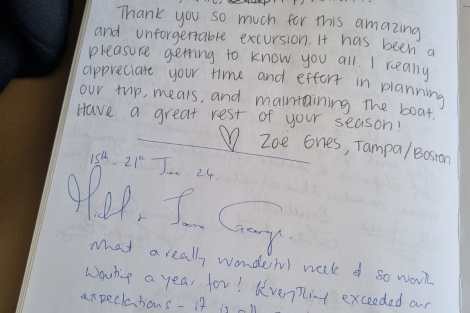 Thank you so much for this amazing
and unforgettable excursion. It has been a
pleasure getting to know you all. I really
appreciate your time and effort in planning
our trip, meals, and maintaining the boat.
Have a great rest of your season!
♡ Zoe Enes, Tampa/Boston
15th - 21st 24.
What a really wonderful week & so worth
waiting a year for! Everything exceeded our
expectations - it is